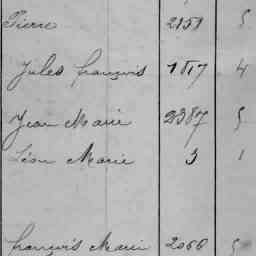 Pierre 2151 5
Jules françois 1817 4
Jean Marie 2387 5
Léon Marie 3 1
françois Marie 2066 5